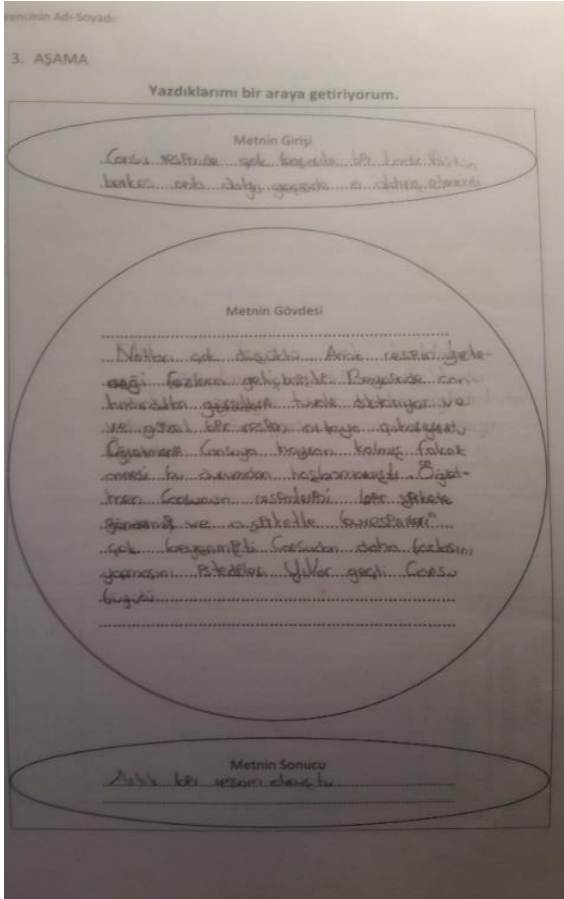 rencinin Adı-Soyadı:
3. AŞAMA
Yazdıklarımı bir araya getiriyorum.
Metnin Girişi
Cansu resimde çok başarılı bir
herkes onla dalga geçse de o aldırış etmezdi
Metnin Gövdesi
Notları çok düşüktü Ama resim yete-
neği fazlaca gelişti
hayalindeki görselleri
ve güzel bir resim ortaya
Öğretmeni Cansuya hayran kalmış fakat
annesi bu durumdan hoşlanmamıştı Öğret-
men Cansunun resimlerini bir şirkete
göndermiş ve o şirkette bu resimleri
çok beğenmişti Cansudan daha fazlasını
yapmasını istediler Yıllar geçti Cansu
büyüdü
Metnin Sonucu
Artık bir ressam olmuştu